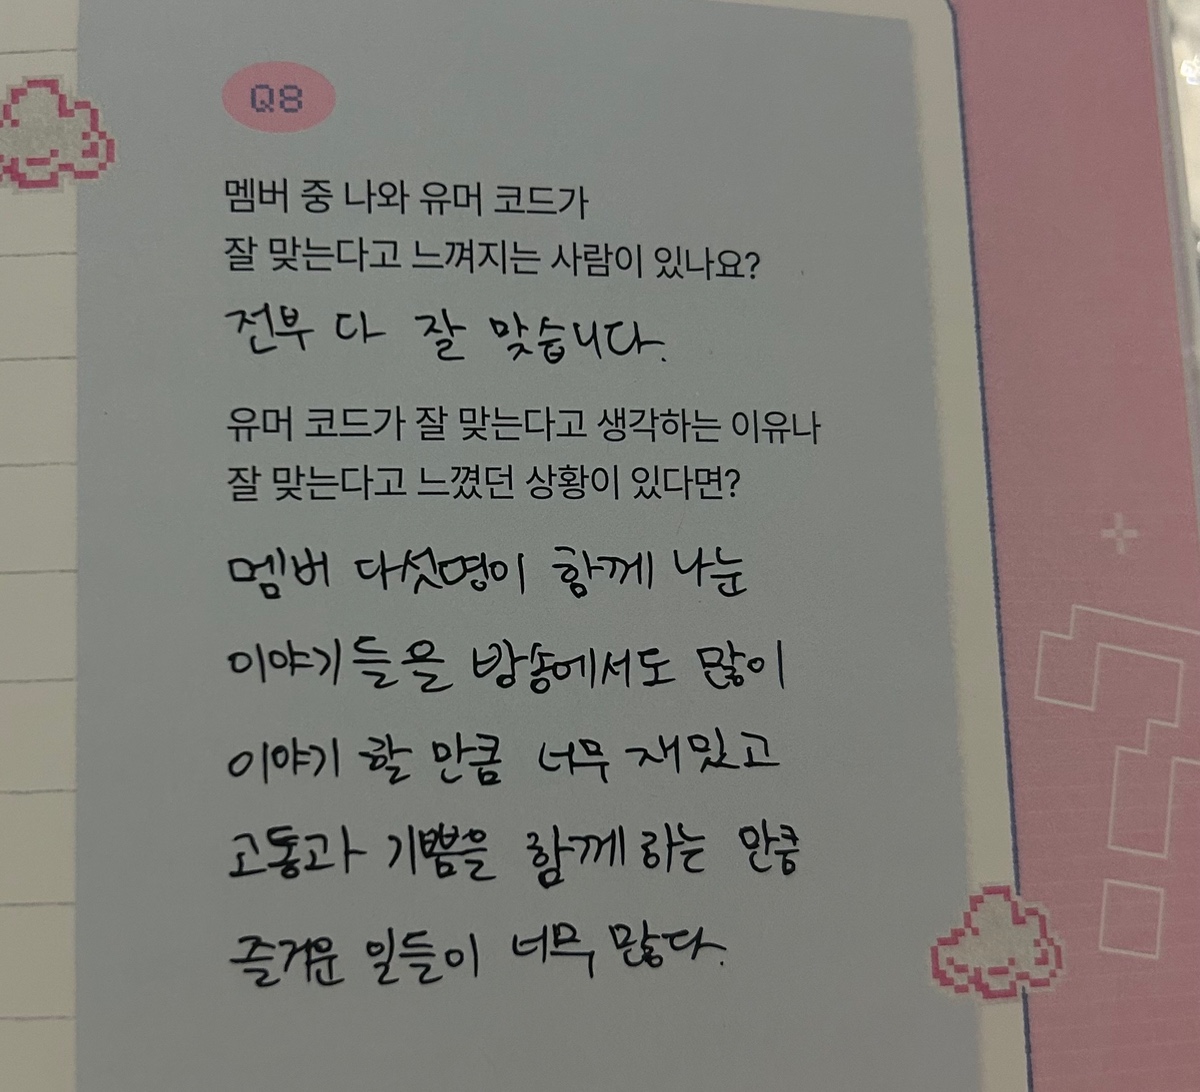 Q8
멤버 중 나와 유머 코드가
잘 맞는다고 느껴지는 사람이 있나요?
전부 다 잘 맞습니다.
유머 코드가 잘 맞는다고 생각하는 이유나
잘 맞는다고 느꼈던 상황이 있다면?
멤버 다섯명이 함께 나눈
이야기들을 방송에서도 많이
이야기 할 만큼 너무 재밌고
고통과 기쁨을 함께 하는 만큼
즐거운 일들이 너무 많다.